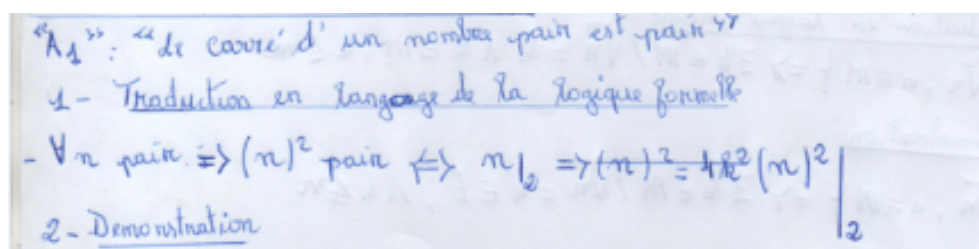 "A1" : "le carré d'un nombre pair est pair"
1- Traduction en langage de la logique formelle
- ∀n pair. => (n)² pair <=> n|2 => (n)² = 4k² (n)²|2
2- Demonstration